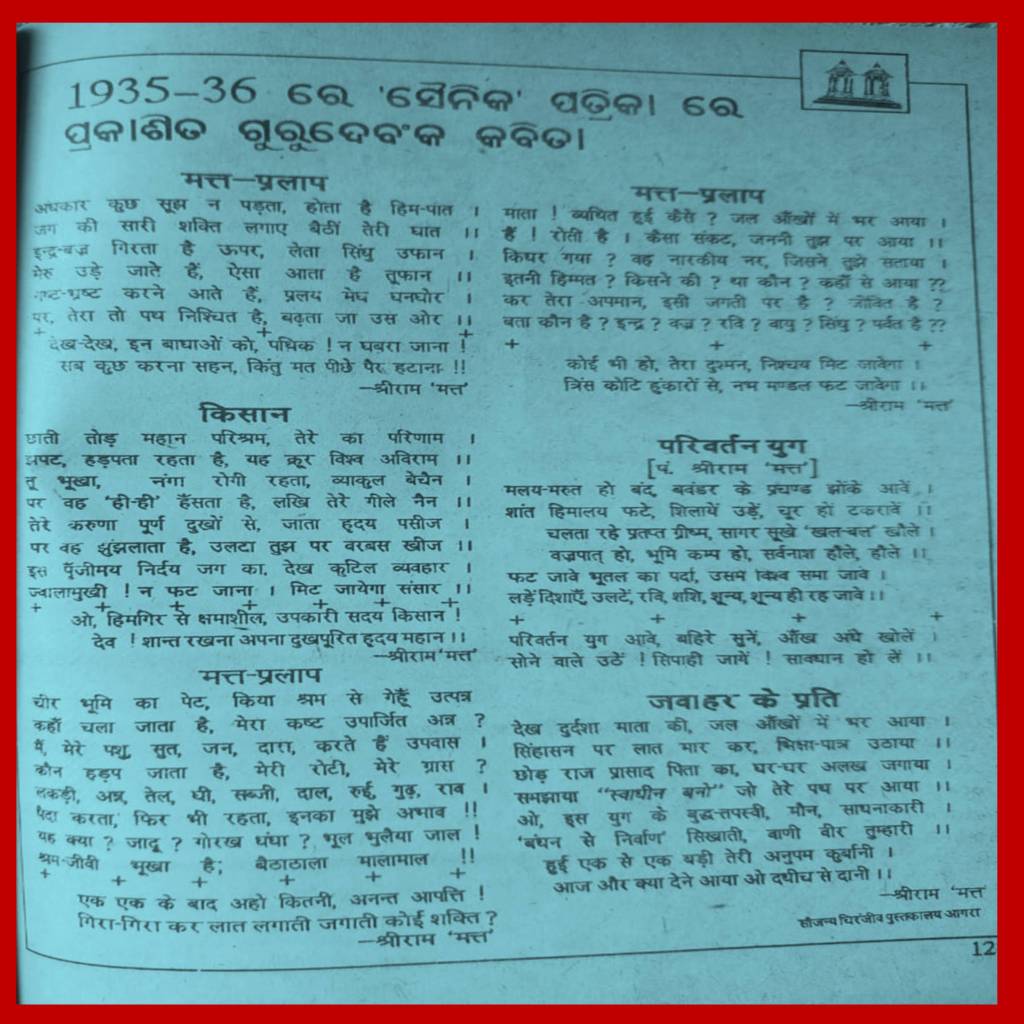 1935-36 ରେ 'ସୈନିକ' ପତ୍ରିକା ରେ
ପ୍ରକାଶିତ ଗୁରୁଦେବଂକ କବିତା
मत्त-प्रलाप
अधकार कुछ सूझ न पड़ता, होता है हिम-पात ।
जग की सारी शक्ति लगाए बैठीं तेरी घांत ।।
इन्द्र-बज्र गिरता है ऊपर, लेता सिंधु उफान ।
मेरु उड़े जाते हैं, ऐसा आता है तूफान ।।
नष्ट-भ्रष्ट करने आते हैं, प्रलय मेघ घनघोर ।
पर, तेरा तो पथ निश्चित है, बढ़ता जा उस ओर ।।
+ + +
देख-देख, इन बाधाओं को, पथिक ! न घबरा जाना !
सब कुछ करना सहन, किंतु मत पीछे पैर हटाना !!
—श्रीराम 'मत्त'
किसान
छाती तोड़ महान परिश्रम, तेरे का परिणाम ।
झपट, हड़पता रहता है, यह क्रूर विश्व अविराम ।।
तू भूखा, नंगा रोगी रहता, व्याकुल बेचैन ।
पर वह 'ही-ही' हँसता है, लखि तेरे गीले नैन ।।
तेरे करुणा पूर्ण दुखों से, जाता हृदय पसीज ।
पर वह झुंझलाता है, उलटा तुझ पर बरबस खीज ।।
इस पूँजीमय निर्दय जग का, देख कुटिल व्यवहार ।
ज्वालामुखी ! न फट जाना । मिट जायेगा संसार ।।
+ + + + +
ओ, हिमगिर से क्षमाशील, उपकारी सदय किसान !
देव ! शान्त रखना अपना दुखपूरित हृदय महान ।।
—श्रीराम 'मत्त'
मत्त-प्रलाप
चीर भूमि का पेट, किया श्रम से गेहूँ उत्पन्न
कहाँ चला जाता है, मेरा कष्ट उपार्जित अन्न ?
मैं, मेरे पशु, सुत, जन, दारा, करते हैं उपवास ।
कौन हड़प जाता है, मेरी रोटी, मेरे ग्रास ?
लकड़ी, अन्न, तेल, घी, सब्जी, दाल, रुई, गुढ़, राव ।
पैदा करता, फिर भी रहता, इनका मुझे अभाव !!
यह क्या ? जादू ? गोरख धंधा ? भूल भुलैया जाल !
श्रम-जीवी भूखा है; बैठाठाला मालामाल !!
+ + + + +
एक एक के बाद अहो कितनी, अनन्त आपत्ति !
गिरा-गिरा कर लात लगाती जगाती कोई शक्ति ?
—श्रीराम 'मत्त'
मत्त-प्रलाप
माता ! व्यथित हुई कैसे ? जल आँखों में भर आया ।
हैं ! रोती है । कैसा संकट, जननी तुझ पर आया ।।
किधर गया ? वह नारकीय नर, जिसने तुझे सताया ।
इतनी हिम्मत ? किसने की ? था कौन ? कहाँ से आया ??
कर तेरा अपमान, इसी जगती पर है ? जीवित है ?
बता कौन है ? इन्द्र ? वज्र ? रवि ? वायु ? सिंधु ? पर्वत है ??
+ + +
कोई भी हो, तेरा दुश्मन, निश्चय मिट जावेगा ।
त्रिंस कोटि हुंकारों से, नभ मण्डल फट जावेगा ।।
—श्रीराम 'मत्त'
परिवर्तन युग
[पं. श्रीराम 'मत्त']
मलय-मरुत हो बंद, बवंडर के प्रचण्ड झोंके आवें ।
शांत हिमालय फटे, शिलायें उड़ें, चूर हों टकरावें ।।
चलता रहे प्रतप्त ग्रीष्म, सागर सूखे 'खल-बल' खौले ।
वज्रपात् हो, भूमि कम्प हो, सर्वनाश हौले, हौले ।।
फट जावे भूतल का पर्दा, उसमें विश्व समा जावे ।
लड़ें दिशाएँ, उलटें, रवि, शशि, शून्य, शून्य ही रह जावे ।।
+ + + +
परिवर्तन युग आवे, बहिरे सुनें, आँख अंधे खोलें ।
सोने वाले उठें ! सिपाही जागें ! सावधान हो लें ।।
जवाहर के प्रति
देख दुर्दशा माता की, जल आँखों में भर आया ।
सिंहासन पर लात मार कर, भिक्षा-पात्र उठाया ।।
छोड़ राज प्रासाद पिता का, घर-घर अलख जगाया ।
समझाया "स्वाधीन बनो" जो तेरे पथ पर आया ।।
ओ, इस युग के बुद्ध-तपस्वी, मौन, साधनाकारी ।
'बंधन से निर्वाण' सिखाती, वाणी वीर तुम्हारी ।।
हुई एक से एक बड़ी तेरी अनुपम कुर्बानी ।
आज और क्या देने आया ओ दधीच से दानी ।।
—श्रीराम 'मत्त'
सौजन्य चिरंजीव पुस्तकालय आगरा
12